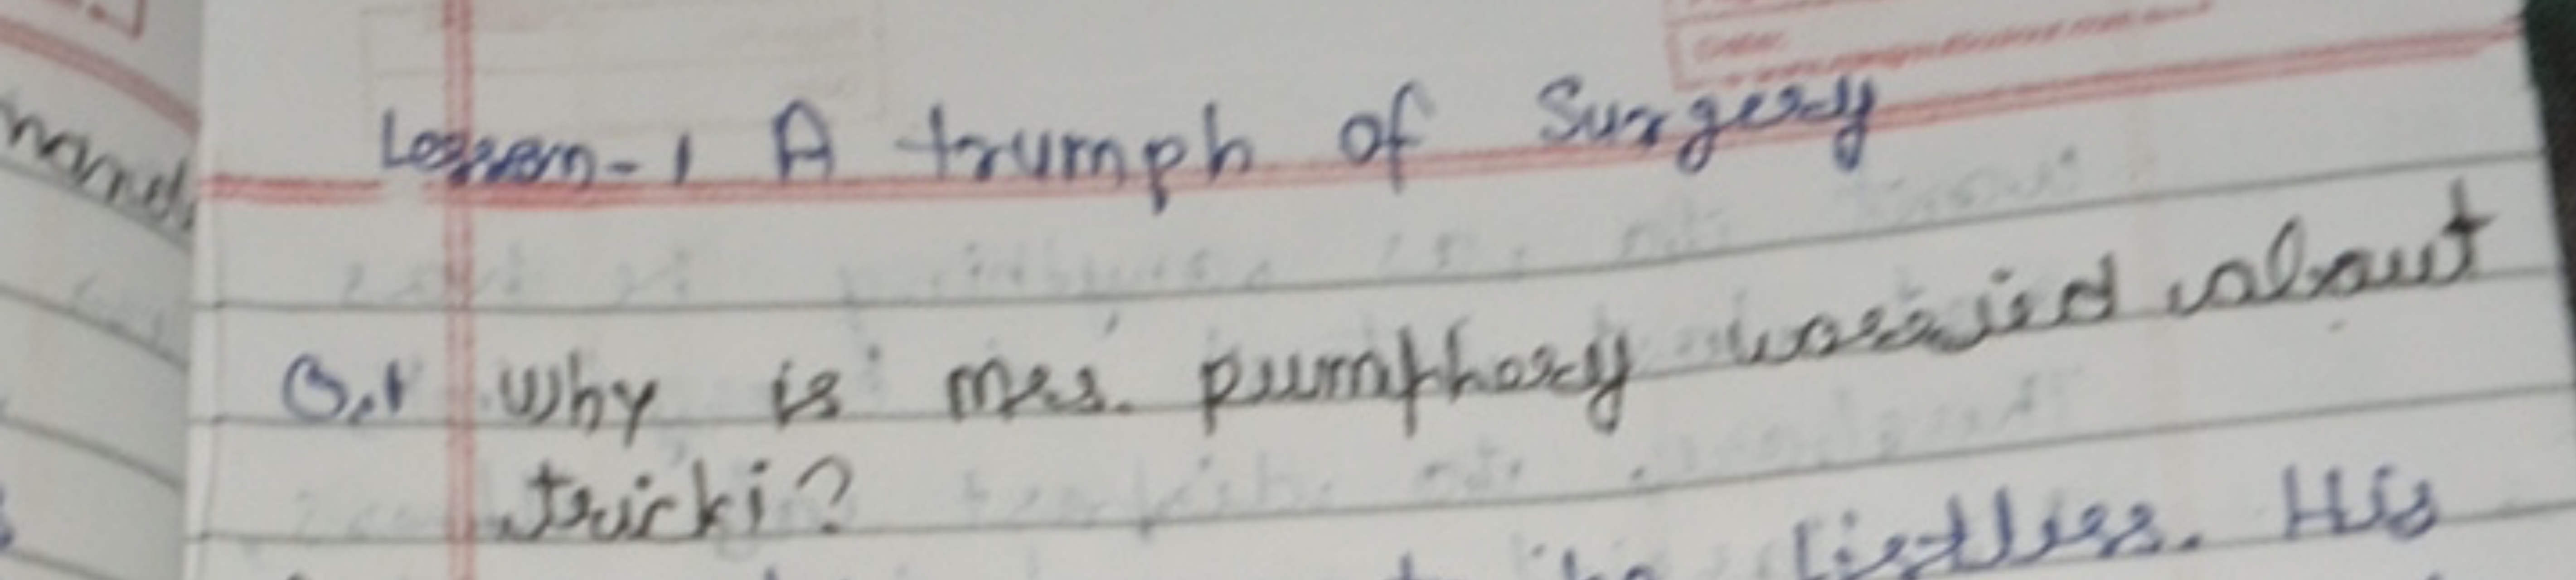 Lesson-1 A trumph of Surgery
nand
Q.1 Why is mrs. pumphery worried about
tricki?
be listless. His